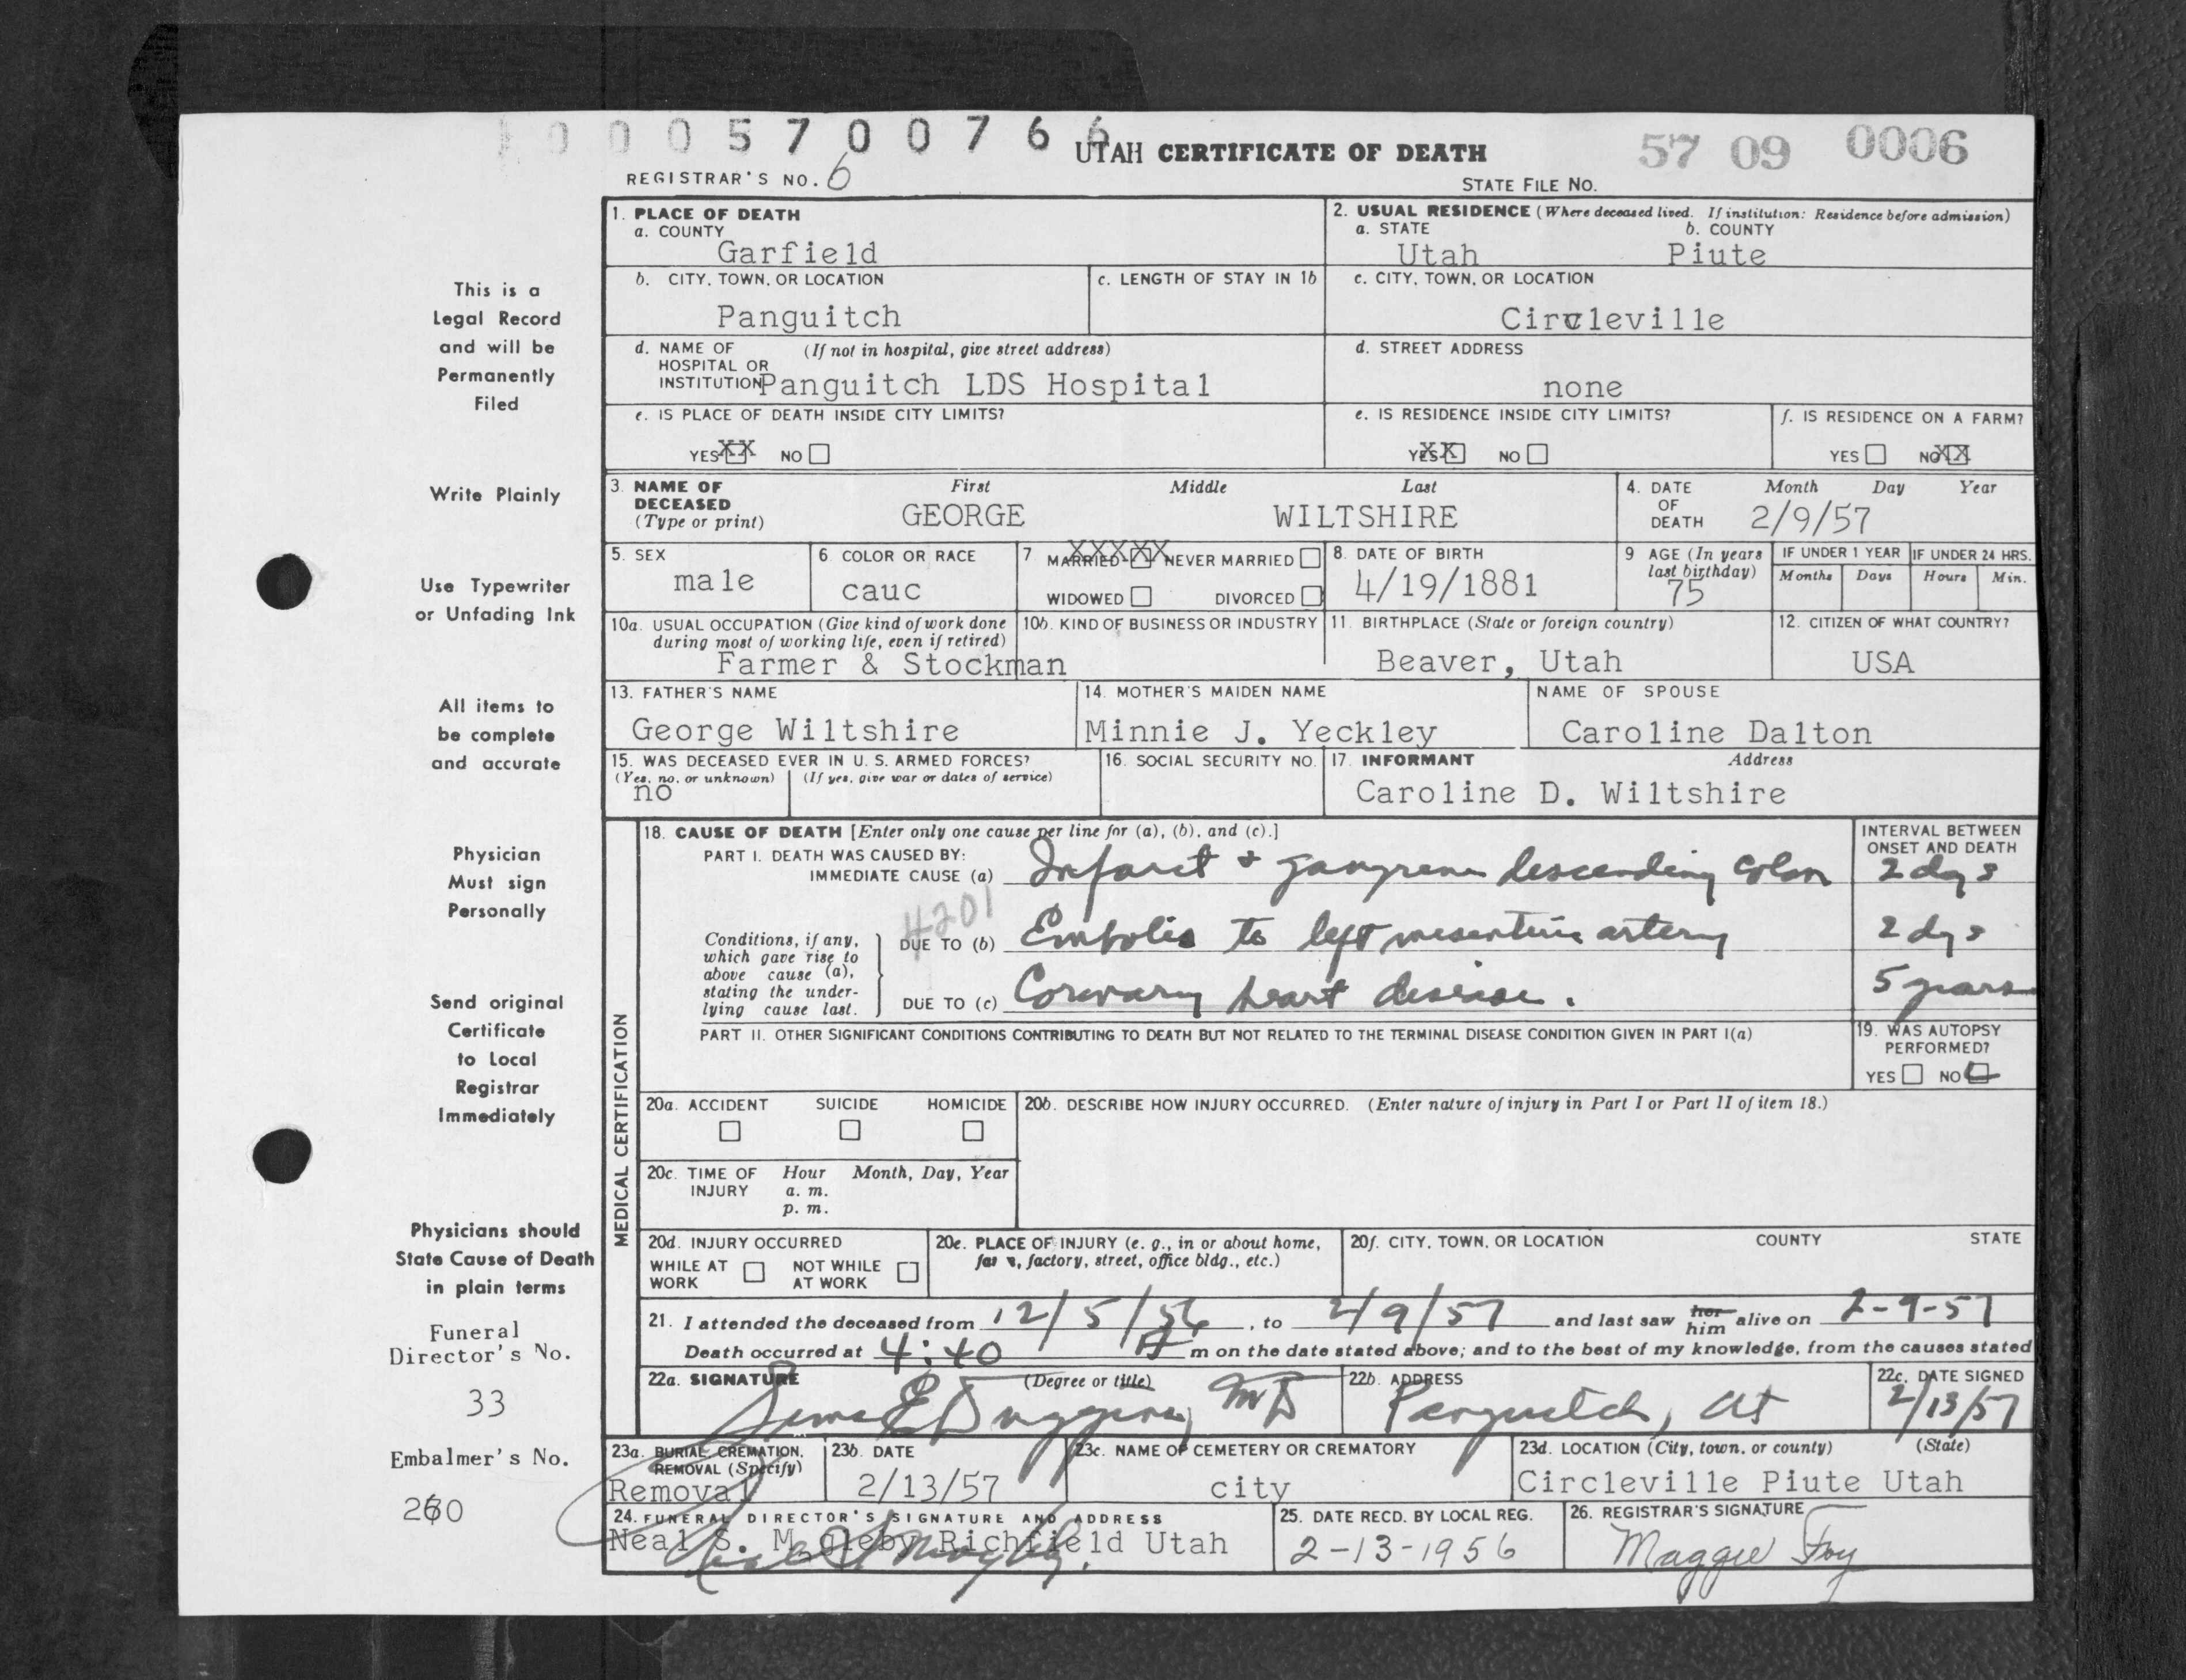 0 0 0 5 7 0 0 7 6 6
UTAH CERTIFICATE OF DEATH
57 09 0006
REGISTRAR'S NO. 6
STATE FILE NO.
1. PLACE OF DEATH
a. COUNTY
Garfield
2. USUAL RESIDENCE (Where deceased lived. If institution: Residence before admission)
a. STATE b. COUNTY
Utah Piute
b. CITY, TOWN, OR LOCATION
Panguitch
c. LENGTH OF STAY IN 1b
c. CITY, TOWN, OR LOCATION
Circleville
d. NAME OF (If not in hospital, give street address)
HOSPITAL OR
INSTITUTION Panguitch LDS Hospital
d. STREET ADDRESS
none
e. IS PLACE OF DEATH INSIDE CITY LIMITS?
YES XX NO
e. IS RESIDENCE INSIDE CITY LIMITS?
YES XX NO
f. IS RESIDENCE ON A FARM?
YES NO XX
3. NAME OF DECEASED (Type or print)
First Middle Last
GEORGE WILTSHIRE
4. DATE OF DEATH
Month Day Year
2/9/57
5. SEX
male
6. COLOR OR RACE
cauc
7 MARRIED XXXXX NEVER MARRIED
WIDOWED DIVORCED
8. DATE OF BIRTH
4/19/1881
9 AGE (In years last birthday)
75
IF UNDER 1 YEAR IF UNDER 24 HRS.
Months Days Hours Min.
10a. USUAL OCCUPATION (Give kind of work done during most of working life, even if retired)
Farmer & Stockman
10b. KIND OF BUSINESS OR INDUSTRY
11. BIRTHPLACE (State or foreign country)
Beaver, Utah
12. CITIZEN OF WHAT COUNTRY?
USA
13. FATHER'S NAME
George Wiltshire
14. MOTHER'S MAIDEN NAME
Minnie J. Yeckley
NAME OF SPOUSE
Caroline Dalton
15. WAS DECEASED EVER IN U. S. ARMED FORCES?
(Yes, no, or unknown) (If yes, give war or dates of service)
no
16. SOCIAL SECURITY NO.
17. INFORMANT Address
Caroline D. Wiltshire
MEDICAL CERTIFICATION
18. CAUSE OF DEATH [Enter only one cause per line for (a), (b), and (c).]
INTERVAL BETWEEN ONSET AND DEATH
PART I. DEATH WAS CAUSED BY:
IMMEDIATE CAUSE (a) Infarct + gangrene descending colon 2 dys
4201
Conditions, if any, which gave rise to above cause (a), stating the underlying cause last.
DUE TO (b) Embolis to left mesenteric artery 2 dys
DUE TO (c) Coronary heart disease. 5 years
PART II. OTHER SIGNIFICANT CONDITIONS CONTRIBUTING TO DEATH BUT NOT RELATED TO THE TERMINAL DISEASE CONDITION GIVEN IN PART I(a)
19. WAS AUTOPSY PERFORMED?
YES NO
20a. ACCIDENT SUICIDE HOMICIDE
20b. DESCRIBE HOW INJURY OCCURRED. (Enter nature of injury in Part I or Part II of item 18.)
20c. TIME OF INJURY Hour Month, Day, Year
a. m.
p. m.
20d. INJURY OCCURRED
WHILE AT WORK NOT WHILE AT WORK
20e. PLACE OF INJURY (e. g., in or about home, factory, street, office bldg., etc.)
20f. CITY, TOWN, OR LOCATION COUNTY STATE
21. I attended the deceased from 12/5/56, to 2/9/57 and last saw her him alive on 2-9-57
Death occurred at 4:40 P m on the date stated above; and to the best of my knowledge, from the causes stated
22a. SIGNATURE (Degree or title)
MD
22b. ADDRESS
Panguitch, Ut
22c. DATE SIGNED
2/13/57
23a. BURIAL, CREMATION, REMOVAL (Specify)
Removal
23b. DATE
2/13/57
23c. NAME OF CEMETERY OR CREMATORY
city
23d. LOCATION (City, town, or county) (State)
Circleville Piute Utah
24. FUNERAL DIRECTOR'S SIGNATURE AND ADDRESS
Neal S. Magleby Richfield Utah
25. DATE RECD. BY LOCAL REG.
2-13-1956
26. REGISTRAR'S SIGNATURE
Maggie Foy
This is a
Legal Record
and will be
Permanently
Filed
Write Plainly
Use Typewriter
or Unfading Ink
All items to
be complete
and accurate
Physician
Must sign
Personally
Send original
Certificate
to Local
Registrar
Immediately
Physicians should
State Cause of Death
in plain terms
Funeral
Director's No.
33
Embalmer's No.